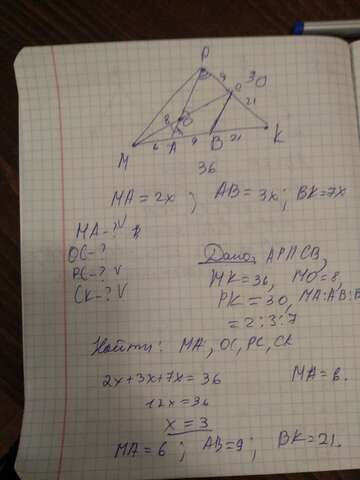 P
9
30
C
21
8
O
M
6
A
9
B
21
K
36
MA = 2x ; AB = 3x ; BK = 7x
MA - ? V
OC - ?
PC - ? V
CK - ? V
Дано: AP || CB,
MK = 36, MO = 8,
PK = 30, MA:AB:B
= 2:3:7
Найти: MA, OC, PC, CK
2x+3x+7x = 36
MA = 6.
12x = 36
x = 3
MA = 6 ; AB = 9 ; BK = 21.